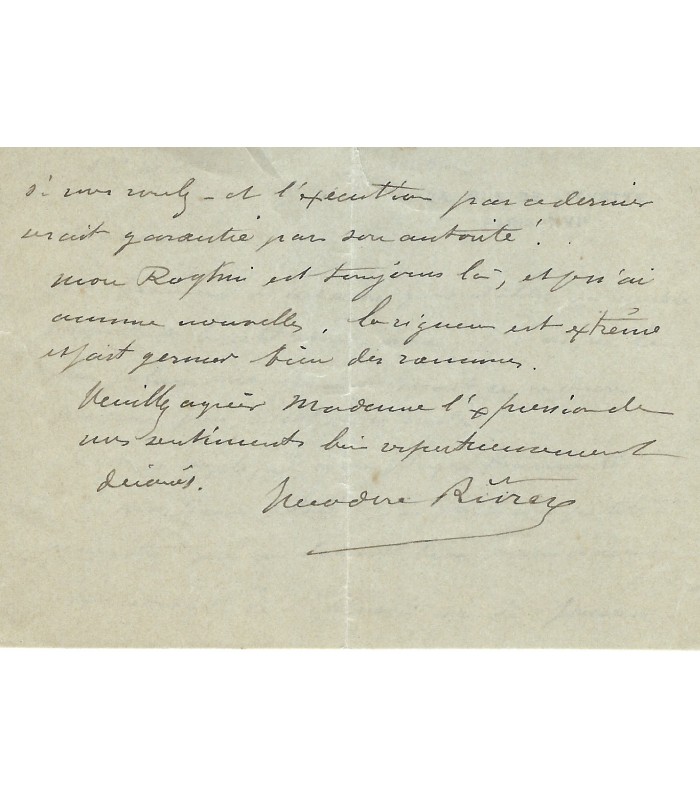 si vous voulez - et l'exécution par ce dernier
serait garantie par son autorité!
mon est toujours là, et je n'ai
aucune nouvelles, la rigueur est extrême
et fait germer bien des rancunes.
Veuillez agréer Madame l'expression de
mes sentiments bien respectueusement
dévoués. Theodore Rivière